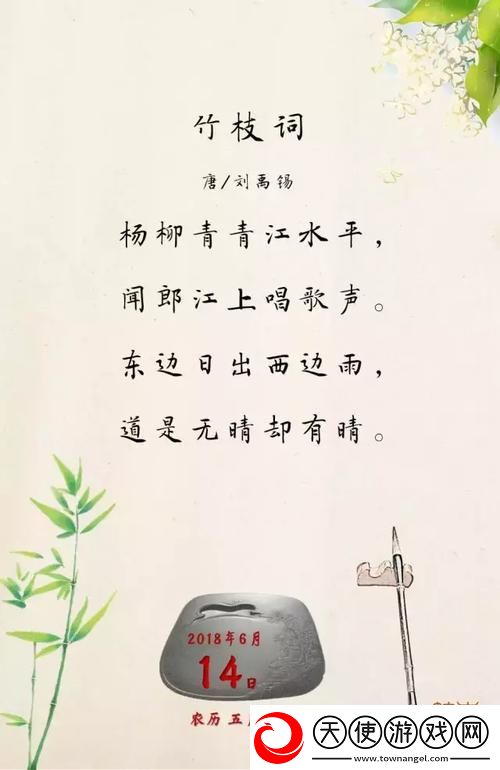 竹枝词
唐/刘禹锡
杨柳青青江水平，
闻郎江上唱歌声。
东边日出西边雨，
道是无晴却有晴。
2018年6月
14日
农历 五
天使游戏网
www.townangel.com